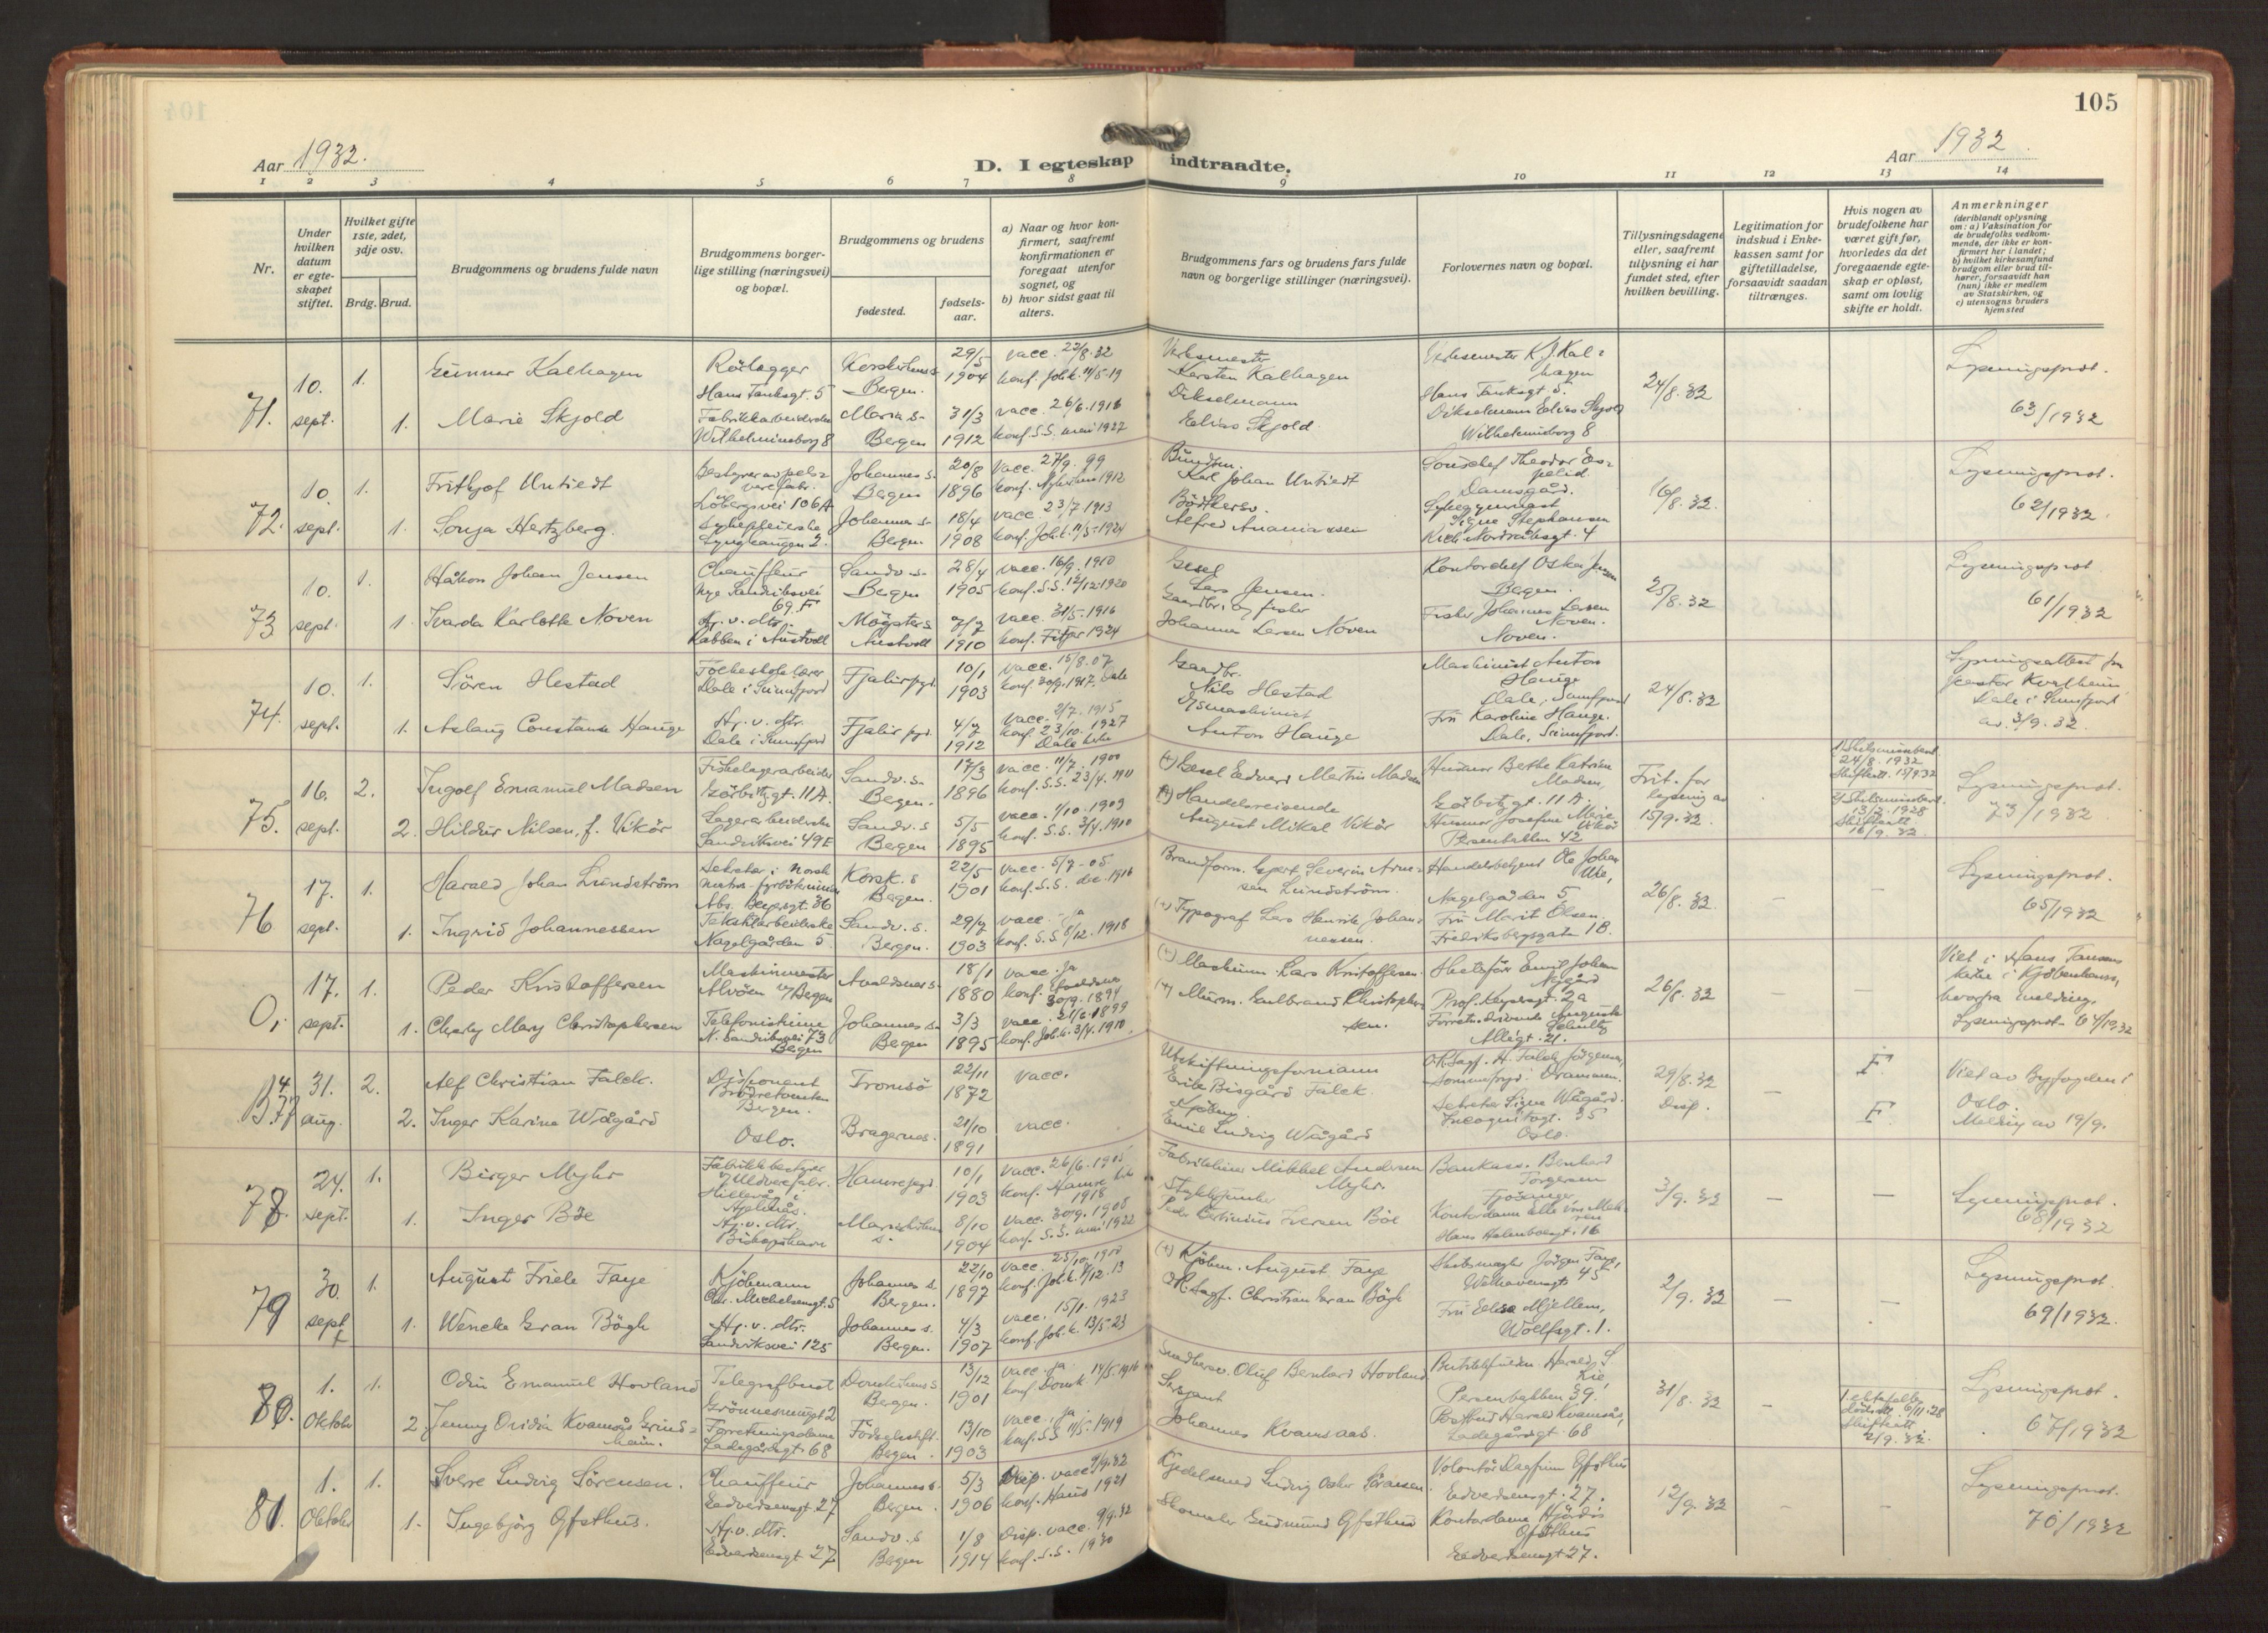 105
Aar 1932.
D. I egteskap indtraadte.
Aar 1932
1 2 3 4 5 6 7 8 9 10 11 12 13 14
Nr.
Under hvilken datum er egteskapet stiftet.
Hvilket gifte 1ste, 2det, 3dje osv.
Brdg. Brud.
Brudgommens og brudens fulde navn
Brudgommens borgerlige stilling (næringsvei) og bopæl.
Brudgommens og brudens
fødested.
fødsels-aar.
a) Naar og hvor konfirmert, saafremt konfirmationen er foregaat utenfor sognet, og
b) hvor sidst gaat til alters.
Brudgommens fars og brudens fars fulde navn og borgerlige stillinger (næringsvei).
Forlovernes navn og bopæl.
Tillysningsdagene eller, saafremt tillysning ei har fundet sted, efter hvilken bevilling.
Legitimation for indskud i Enkekassen samt for giftetilladelse, forsaavidt saadan tiltrænges.
Hvis nogen av brudefolkene har været gift før, hvorledes da det foregaaende egteskap er opløst, samt om lovlig skifte er holdt.
Anmerkninger
(deriblandt oplysning om: a) Vaksination for de brudefolks vedkommende, der ikke er konfirmert her i landet;
b) hvilket kirkesamfund brudgom eller brud tilhører, forsaavidt han (hun) ikke er medlem av Statskirken, og
c) utensogns bruders hjemsted
71. 10. sept. 1. Gunnar Kalhagen Rörlegger Hans Tanksgt. 5 Korskirkens s. Bergen. 29/5 1904 vacc. 22/8.32 konf. Joh.k. 11/5-19
Verksmester Karsten Kalhagen
Verksmester K. J. Kalhagen Hans Tanksgt. 5.
24/8.32
Lysningsprot. 63/1932
1. Marie Skjold Fabrikkarbeiderske Wilhelminsborg 8 Maria s. Bergen 31/3 1912 vacc. 26/6.1916 konf. S.S. mai 1927
Dikselmann Elias Skjold
Dikselmann Elias Skjold Wilhelminsborg 8
72. 10. sept. 1. Frithjof Untiedt Löbergsvei 106A Johannes s. Bergen 20/8 1896 Vacc. 27/9. 99
Karl Johan Untiedt
Damsgård.
16/8.32.
Lysningsprot. 62/1932.
1. Sonja Hertzberg. Lynghaugen 2. Johannes s. Bergen 18/4 1908 vacc 23/7 1913 konf. Joh.k. 11/5-1924
Alfred Ananiassen
Signe Stephansen
73 10. sept. 1. Håkon Johan Jensen Chauffeur Nye Sandviksvei 69.F Sandv. s. Bergen 28/4 1905 vacc. 16/9. 1910 konf. S.S. 12/12.1920
Lars Jensen.
Kontorchef Oskar Jensen Bergen.
25/8.32
Lysningsprot 61/1932
1. Ivarda Karlotte Noven Hj. v. dtr. Kabben i Austvoll Mögster s. Austvoll 7/7 1910 Vacc. 31/5-1916 konf. Fitjar 1924
Gaardbr. og fisker Johannes Larsen Noven
Fisker Johannes Larsen Noven. Noven.
74. 10. sept. 1. Sören Hestad Folkeskolelærer Dale i Sunnfjord Fjalir pgd. 10/1 1903 vacc. 15/8.07 konf. 30/9.1917. Dale
Gaardbr. Nils Hestad
Maskinist Anton Hauge Dale, Sunnfjord
24/8.32
Lysningsattest fra pastor Kvalheim Dale i Sunnfjord av. 3/9.32.
1. Aslaug Constanse Hauge Hj. v. dtr. Dale i Sunnfjord Fjalir pgd. 4/7 1912 Vacc. 2/7.1915 konf. 23/10.1927 Dale kirke
Anton Hauge
Fru Karoline Hauge. Dale, Sunnfjord.
75. 16. sept. 2. Ingolf Emanuel Madsen Fiskelagerarbeider Görbitzgt. 11A. Sandv. s. Bergen. 17/3 1896 vacc. 11/7. 1900 konf. S.S. 23/4.1911
(+) Gesel Edvard Martin Madsen
Husmor Berthe Katrine Madsen, Görbitzgt. 11A.
Frit. for lysning av 15/9.32.
Lysningsprot. 73/1932
2. Hildur Nilsen, f. Vikör Lagerarbeiderske Sandviksvei 49E Sandv. s Bergen 5/5 1895 vacc. 1/10.1903 konf. S.S. 3/4.1910
(+) Handelsreisende August Mikal Vikör
Husmor Josefine Marie Vikör Persenbakken 42
76 17. sept. 1. Harald Johan Lundström Abs. Beyersgt. 36 Korsk. s Bergen. 22/5 1901 vacc. 5/7-05. konf. S.S. des. 1916
Brandform. Gjert Severin Arnesen Lundström.
Nagelgaarden 5
26/8.32.
Lysningsprot. 65/1932
1. Ingrid Johannessen Tekstilarbeiderske Nagelgården 5. Sandv. s. Bergen. 29/7 1903 vacc. ja konf. S.S. 8/12.1918
(+) Typograf Lars Henrik Johannessen.
Fru Marit Olsen. Fredriksbergsgate 1B.
0, 17. sept. 1. Peder Kristoffersen Maskinmester Alvöen v/Bergen Avaldsnes s. 18/1 1880 vacc. ja konf. Avaldsnes 30/9.1894
(+) Maskinm. Lars Kristoffersen.
Prof. Keysersgt. 2a
26/8.32
Viet i Hans Tausens kirke i Kjöbenhavn, hvorfra melding. Lysningsprot- 64/1932
1. Charley Mary Christophersen Telefonistinne N. Sandviksvei 73 Bergen Johannes s. Bergen 3/3 1895 konf. Joh.k. 3/4.1910.
(+) Murm. Gulbrand Christophersen.
Allégt. 21.
B. 77 31. aug. 2. Alf Christian Falck. Disponent Bergen. Tromsö 22/11 1872 vacc.
Utskiftningsformann Erik Bisgård Falck.
O.R.sagf. H. Falck Jörgensen, Sommerfryd. Drammen.
29/8.32 Disp.
F
Viet av Byfogden i Oslo. Melding av 19/9.
2. Inger Karine Wiågård Oslo. Bragernes. 21/10 1891 vacc.
Kjöbm. Emil Ludvig Wiågård
Sekretær Signe Wiågård. Incognitogt. 35 Oslo.
F
78. 24. sept. 1. Birger Myhr Fabrikkbestyrer Hamre pgd 10/1 1903 vacc. 26/6.1905 konf. Hamre kirke 1918
Fabrikkeier Mikkel Andersen Myhr.
3/9.32
Lysningsprot. 68/1932
1. Inger Böe Hj. v. dtr. Biskopshavn 8/10 1904 Vacc. 30/9.1908 konf. S.S. mai 1922
Iversen Böe
Hans Holmboesgt. 16
79 30. sept. 1. August Friele Faye Kjöbmann Chr. Michelsensgt. 5 Johannes s. Bergen. 22/10 1897 vacc. 25/10.1900 konf. Joh.k. 7/12.13
(+) Kjöbm. August Faye
Skibsmegler Jörgen Faye, Welhavensgt 45
2/9.32
Lysningsprot. 69/1932.
1. Wencke Gran Bögh Hj. v. dtr. Sandviksvei 125 Johannes s. Bergen. 4/3 1907 vacc. 15/1.1923 konf. Joh.k. 13/5.23
O.R.sagf. Christian Gran Bögh
Fru Elisa Mjellem, Wolffsgt. 1.
80. 1. Oktober 1. Odin Emanuel Hovland Telegrafbud Domkirkens s Bergen. 13/12 1901 vacc. ja konf. Domk. 14/5.1916
Oluf Bernhard Hovland
Persenbakken 39.
31/8.32
1. ektefelle död 6/11.28 Skifteatt 2/9.32.
Lysningsprot. 67/1932
2. Jenny Ovidia Kvamsås Grindheim. Forretningsdame Ladegårdsgt. 68 Födselsstift. Bergen. 13/10 1903 vacc. ja. konf. S.S. 11/5.1919
Sersjant Johannes Kvamsaas.
Postbud Harald Kvamsås, Ladegårdsgt. 68
81. 1. Oktober 1. Sverre Ludvig Sörensen. Chauffeur Edvardsensgt. 27 Johannes s. Bergen. 5/3 1906 Disp. vacc 9/9.32 konf. Haus 1921
Kjedelsmed Ludvig Oskar Sörensen.
Volontör Dagfinn Gjesthus Edvardsensgt. 27.
12/9.32
Lysningsprot. 70/1932
1. Ingebjörg Gjesthus. Hj. v. dtr. Edvardsensgt 27 Sandv. s Bergen 1/8 1914 Disp. vacc. 9/9.32 konf. S.S. 1930
Skomaker Gudmund Gjesthus
Kontordame Hjördis Gjesthus Edvardsensgt 27.